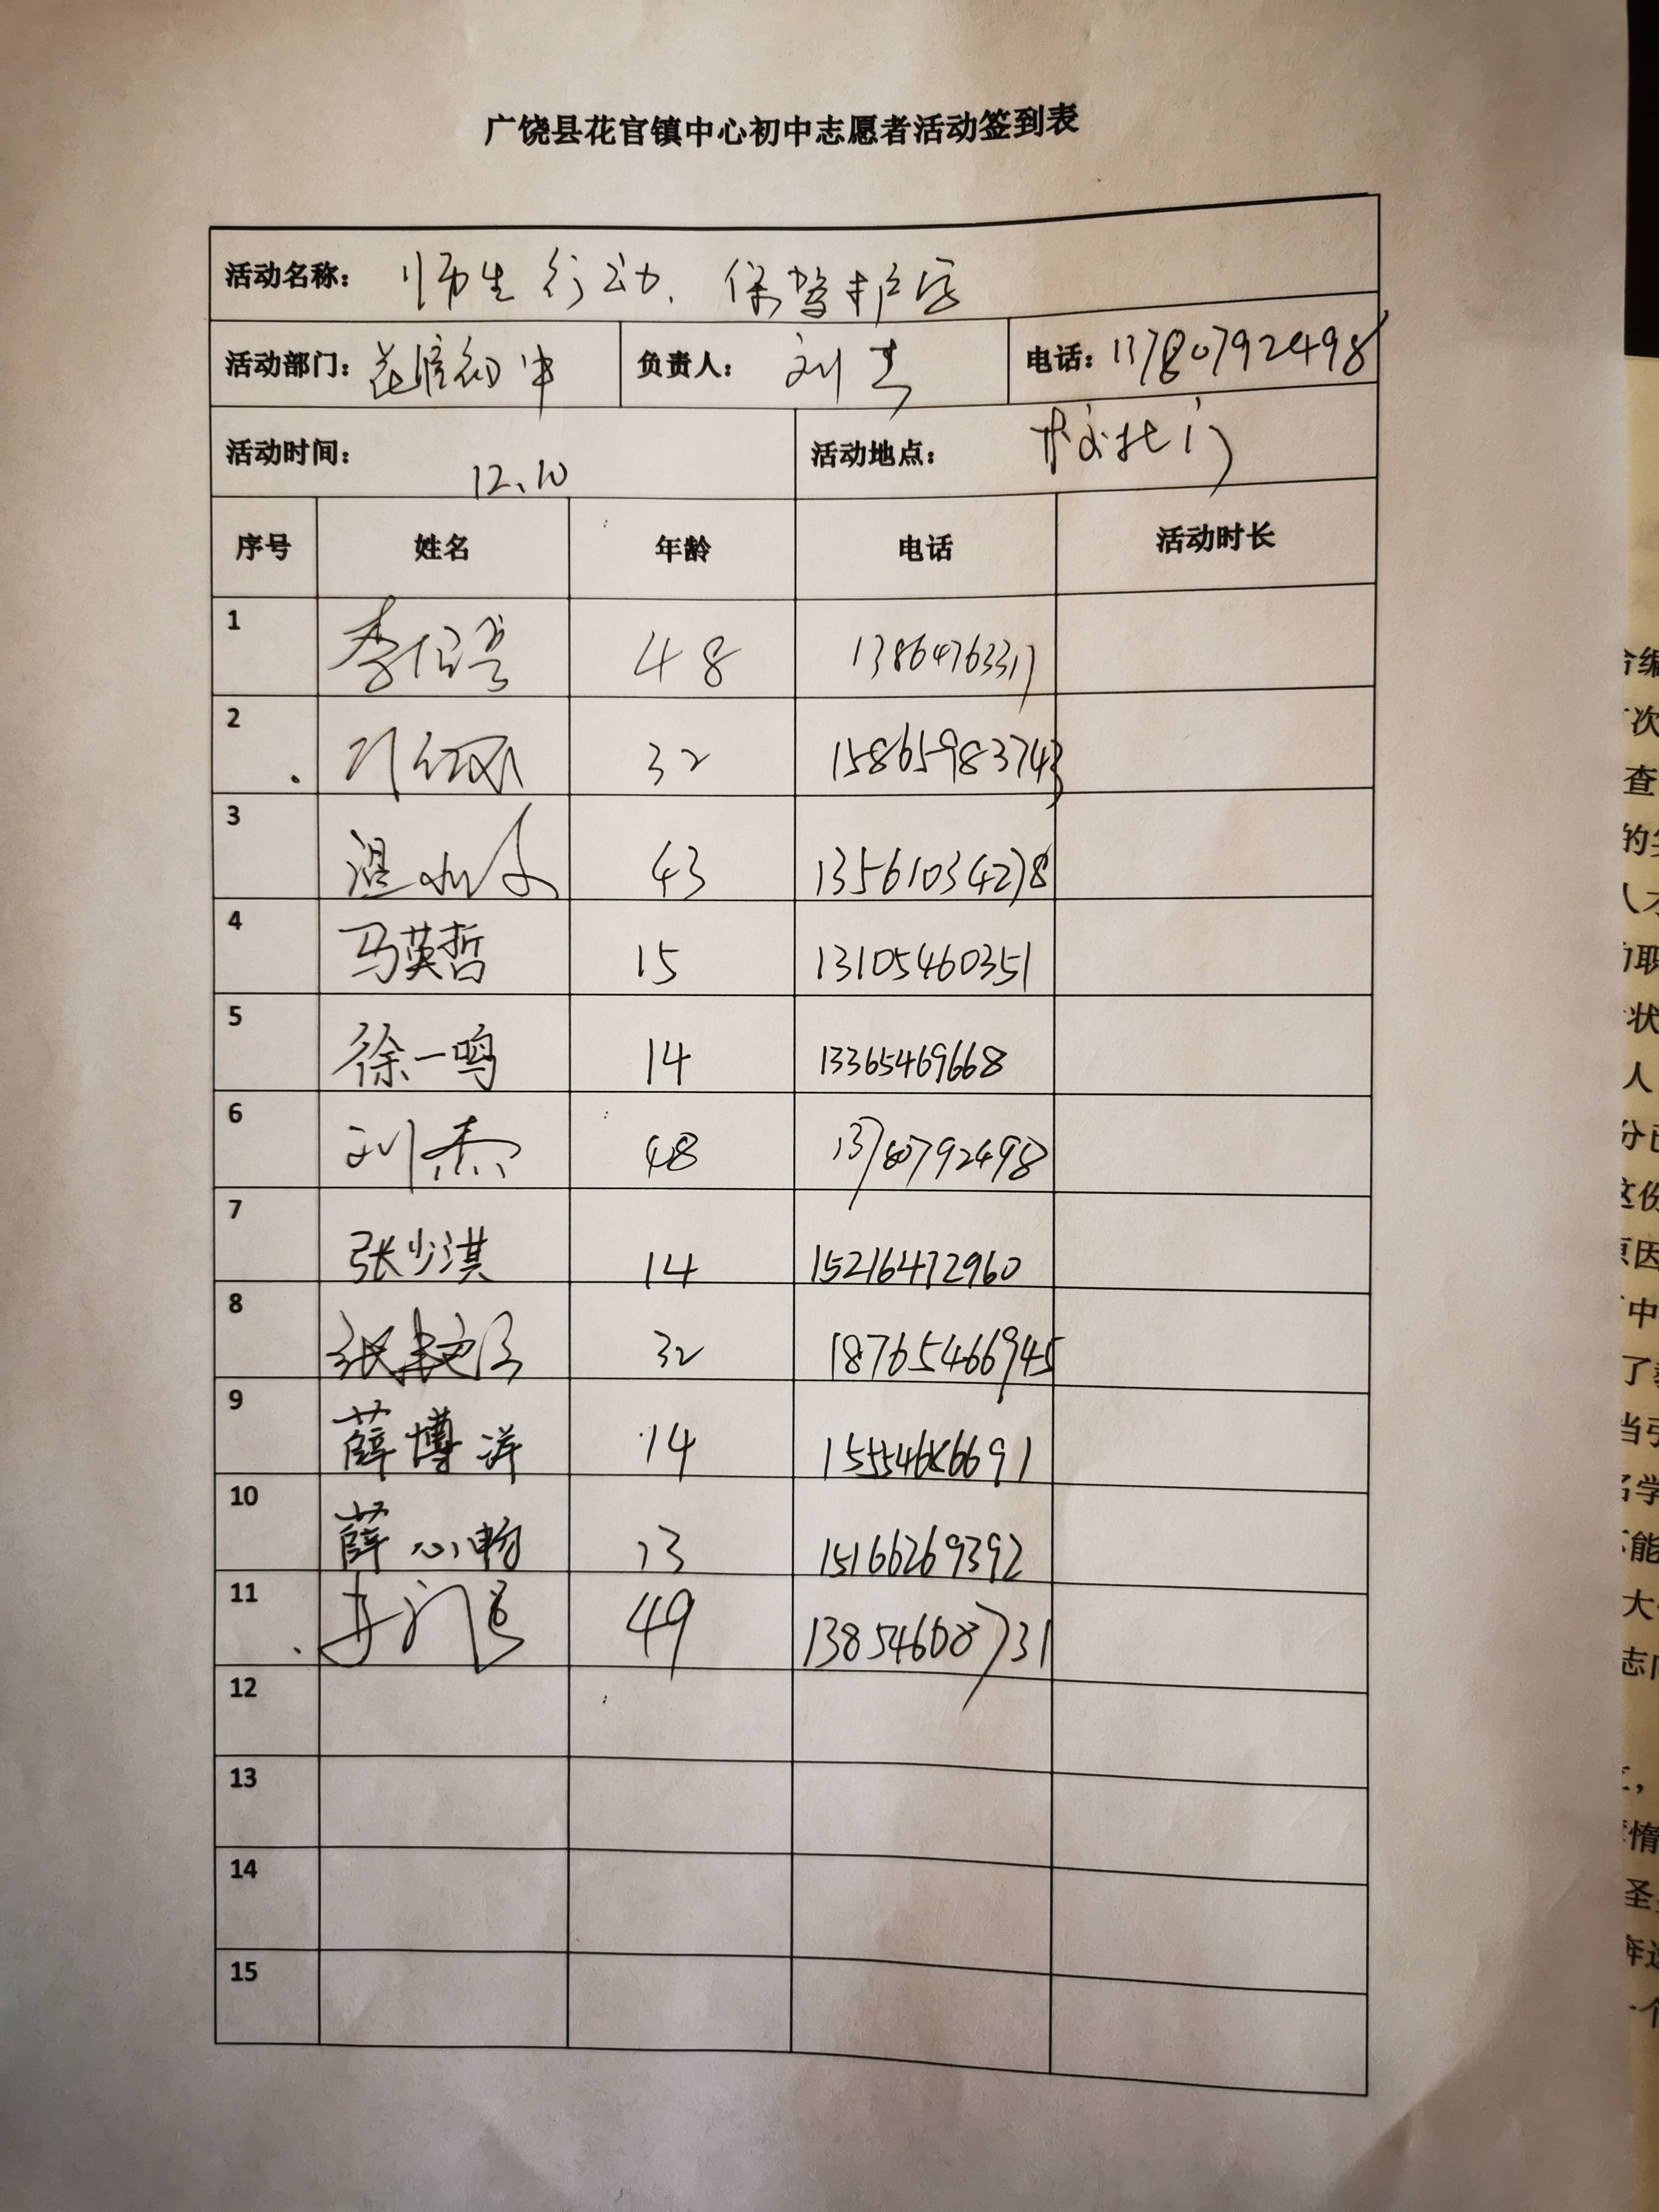 广饶县花官镇中心初中志愿者活动签到表
活动名称： 师生行动、保驾护
活动部门： 花官初中 负责人： 刘杰 电话： 13780792498
活动时间： 12.10 活动地点： 校北门
序号 姓名 年龄 电话 活动时长
1 李 48 13864763317
2 32 15865983743
3 温 43 13561034278
4 马英哲 15 13105460351
5 徐一鸣 14 13365469668
6 刘杰 48 13780792498
7 张少淇 14 15216472960
8 张 32 18765466945
9 薛博洋 14
10 薛心畅 13 15166269392
11 49 13854608731
12
13
14
15